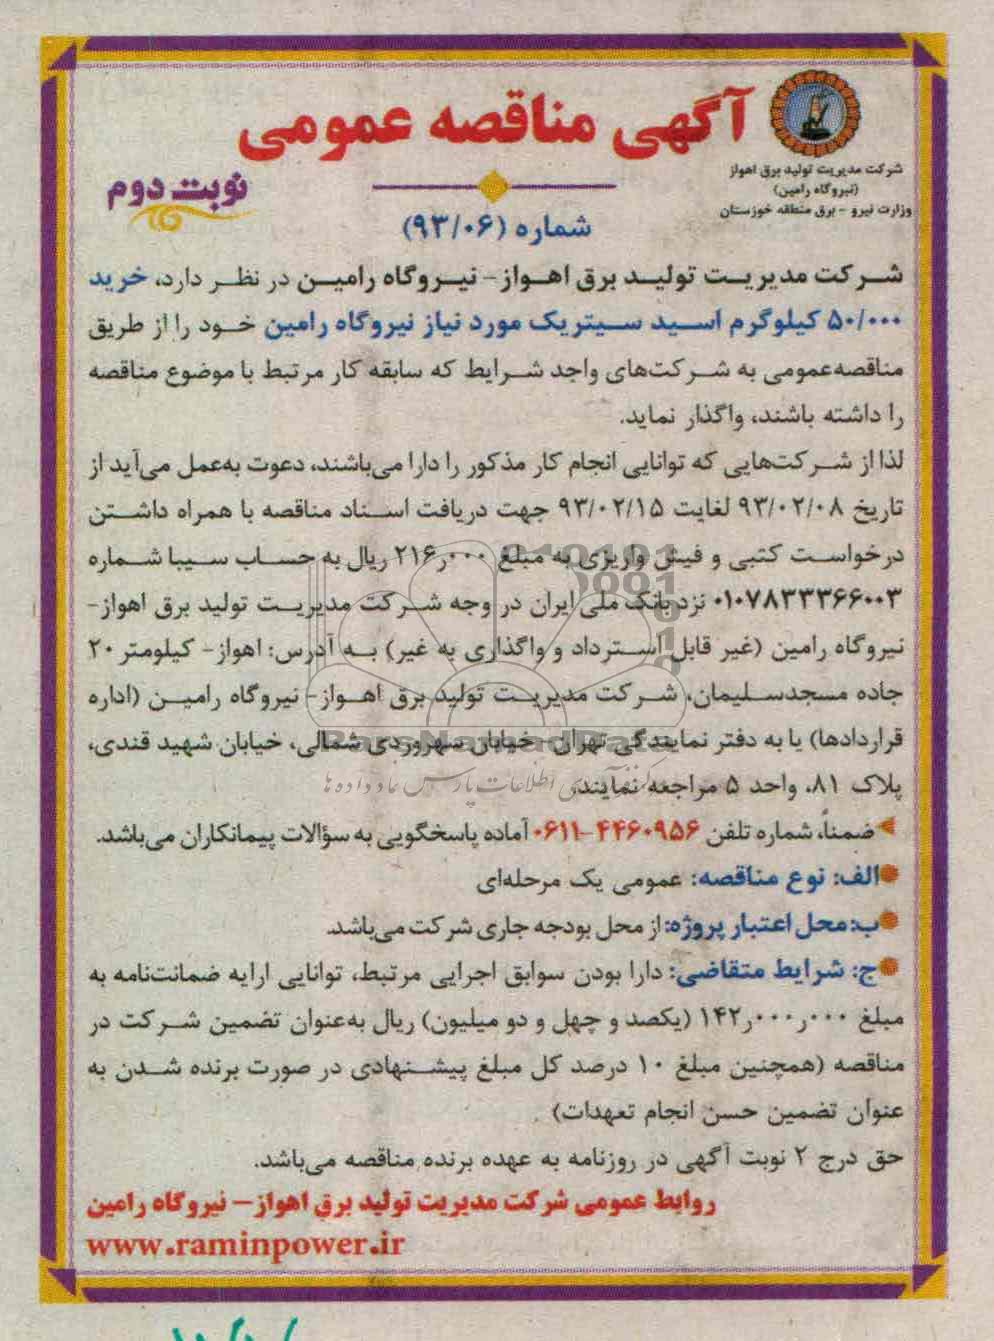 آگهی مناقصه عمومی
شرکت مدیریت تولید برق اهواز
(نیروگاه رامین)
وزارت نیرو - برق منطقه خوزستان
نوبت دوم
شماره (۹۳/۰۶)
شرکت مدیریت تولید برق اهواز- نیروگاه رامین در نظر دارد، خرید
۵۰/۰۰۰ کیلوگرم اسید سیتریک مورد نیاز نیروگاه رامین خود را از طریق
مناقصه‌عمومی به شرکت‌های واجد شرایط که سابقه کار مرتبط با موضوع مناقصه
را داشته باشند، واگذار نماید.
لذا از شرکت‌هایی که توانایی انجام کار مذکور را دارا می‌باشند، دعوت به‌عمل می‌آید از
تاریخ ۹۳/۰۲/۰۸ لغایت ۹۳/۰۲/۱۵ جهت دریافت اسناد مناقصه با همراه داشتن
درخواست کتبی و فیش واریزی به مبلغ ۲۱۶٫۰۰۰ ریال به حساب سیبا شماره
۰۱۰۷۸۳۳۳۶۶۰۰۳ نزد بانک ملی ایران در وجه شرکت مدیریت تولید برق اهواز-
نیروگاه رامین (غیر قابل استرداد و واگذاری به غیر) به آدرس: اهواز- کیلومتر ۲۰
جاده مسجدسلیمان، شرکت مدیریت تولید برق اهواز- نیروگاه رامین (اداره
قراردادها) یا به دفتر نمایندگی تهران- خیابان سهروردی شمالی، خیابان شهید قندی،
پلاک ۸۱، واحد ۵ مراجعه نمایند.
ضمناً، شماره تلفن ۴۴۶۰۹۵۶-۰۶۱۱ آماده پاسخگویی به سؤالات پیمانکاران می‌باشد.
الف: نوع مناقصه: عمومی یک مرحله‌ای
ب: محل اعتبار پروژه: از محل بودجه جاری شرکت می‌باشد.
ج: شرایط متقاضی: دارا بودن سوابق اجرایی مرتبط، توانایی ارایه ضمانت‌نامه به
مبلغ ۱۴۲٫۰۰۰٫۰۰۰ (یکصد و چهل و دو میلیون) ریال به‌عنوان تضمین شرکت در
مناقصه (همچنین مبلغ ۱۰ درصد کل مبلغ پیشنهادی در صورت برنده شدن به
عنوان تضمین حسن انجام تعهدات).
حق درج ۲ نوبت آگهی در روزنامه به عهده برنده مناقصه می‌باشد.
روابط عمومی شرکت مدیریت تولید برق اهواز – نیروگاه رامین
www.raminpower.ir
ParsNamadData